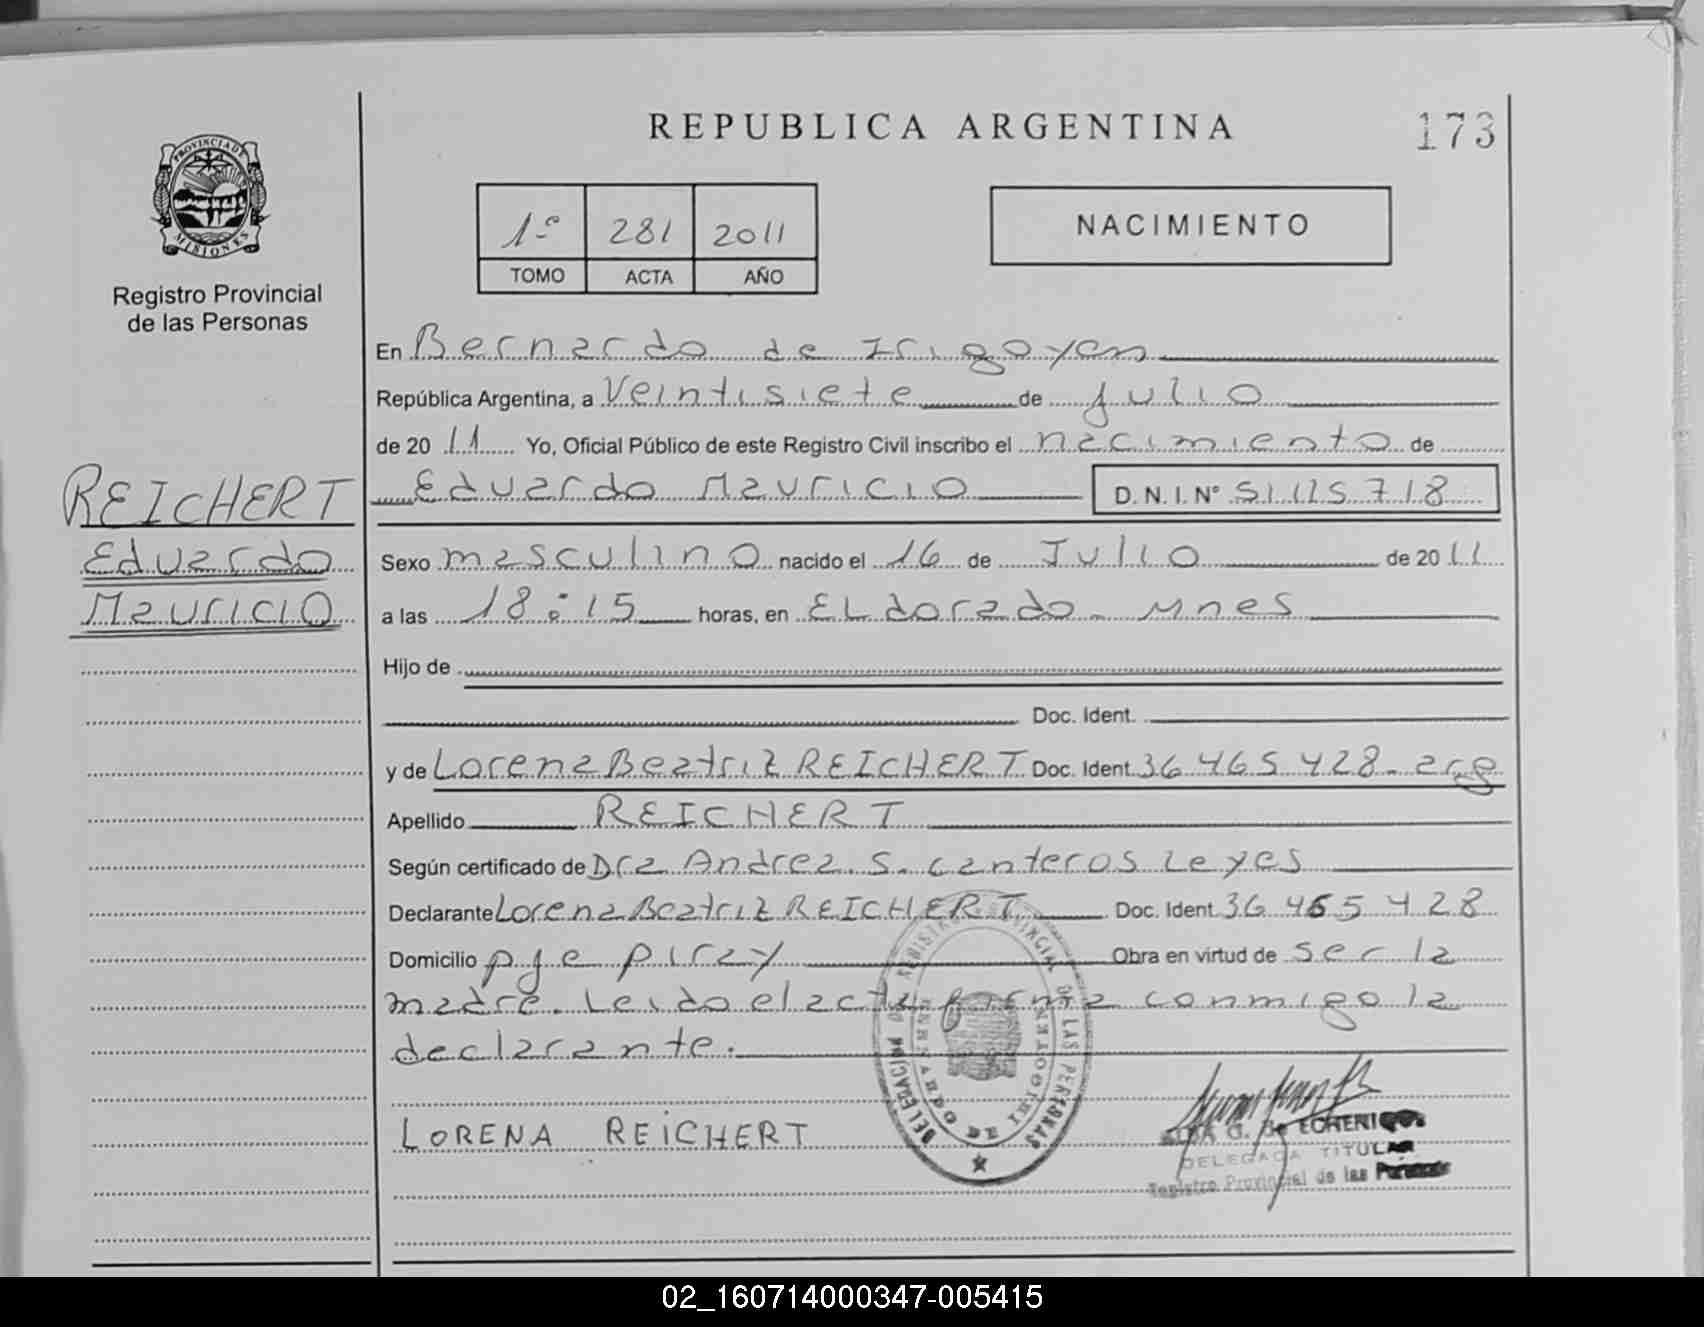 REPUBLICA ARGENTINA
173
PROVINCIA DE
MISIONES
Registro Provincial
de las Personas
1º 281 2011
TOMO ACTA AÑO
NACIMIENTO
En Bernardo de Irigoyen
República Argentina, a Veintisiete de Julio
de 2011 Yo, Oficial Público de este Registro Civil inscribo el nacimiento de
Eduardo Mauricio D.N.I. Nº 51.115.718
REICHERT
Eduardo
Mauricio
Sexo masculino nacido el 16 de Julio de 2011
a las 18:15 horas, en ELdorado - Mnes
Hijo de
Doc. Ident.
y de Lorena Beatriz REICHERT Doc. Ident. 36 465 428 - arg
Apellido REICHERT
Según certificado de Dra Andrea. S. Canteros Leyes
Declarante Lorena Beatriz REICHERT Doc. Ident. 36 465 428
Domicilio pje piray Obra en virtud de ser la
madre. Leido el acta firma conmigo la
declarante.
DELEGACION DEL REGISTRO PROVINCIAL DE LAS PERSONAS
BERNARDO DE IRIGOYEN
LORENA REICHERT
G. de ECHERI
DELEGADA TITULAR
Registro Provincial de las Personas
02_160714000347-005415